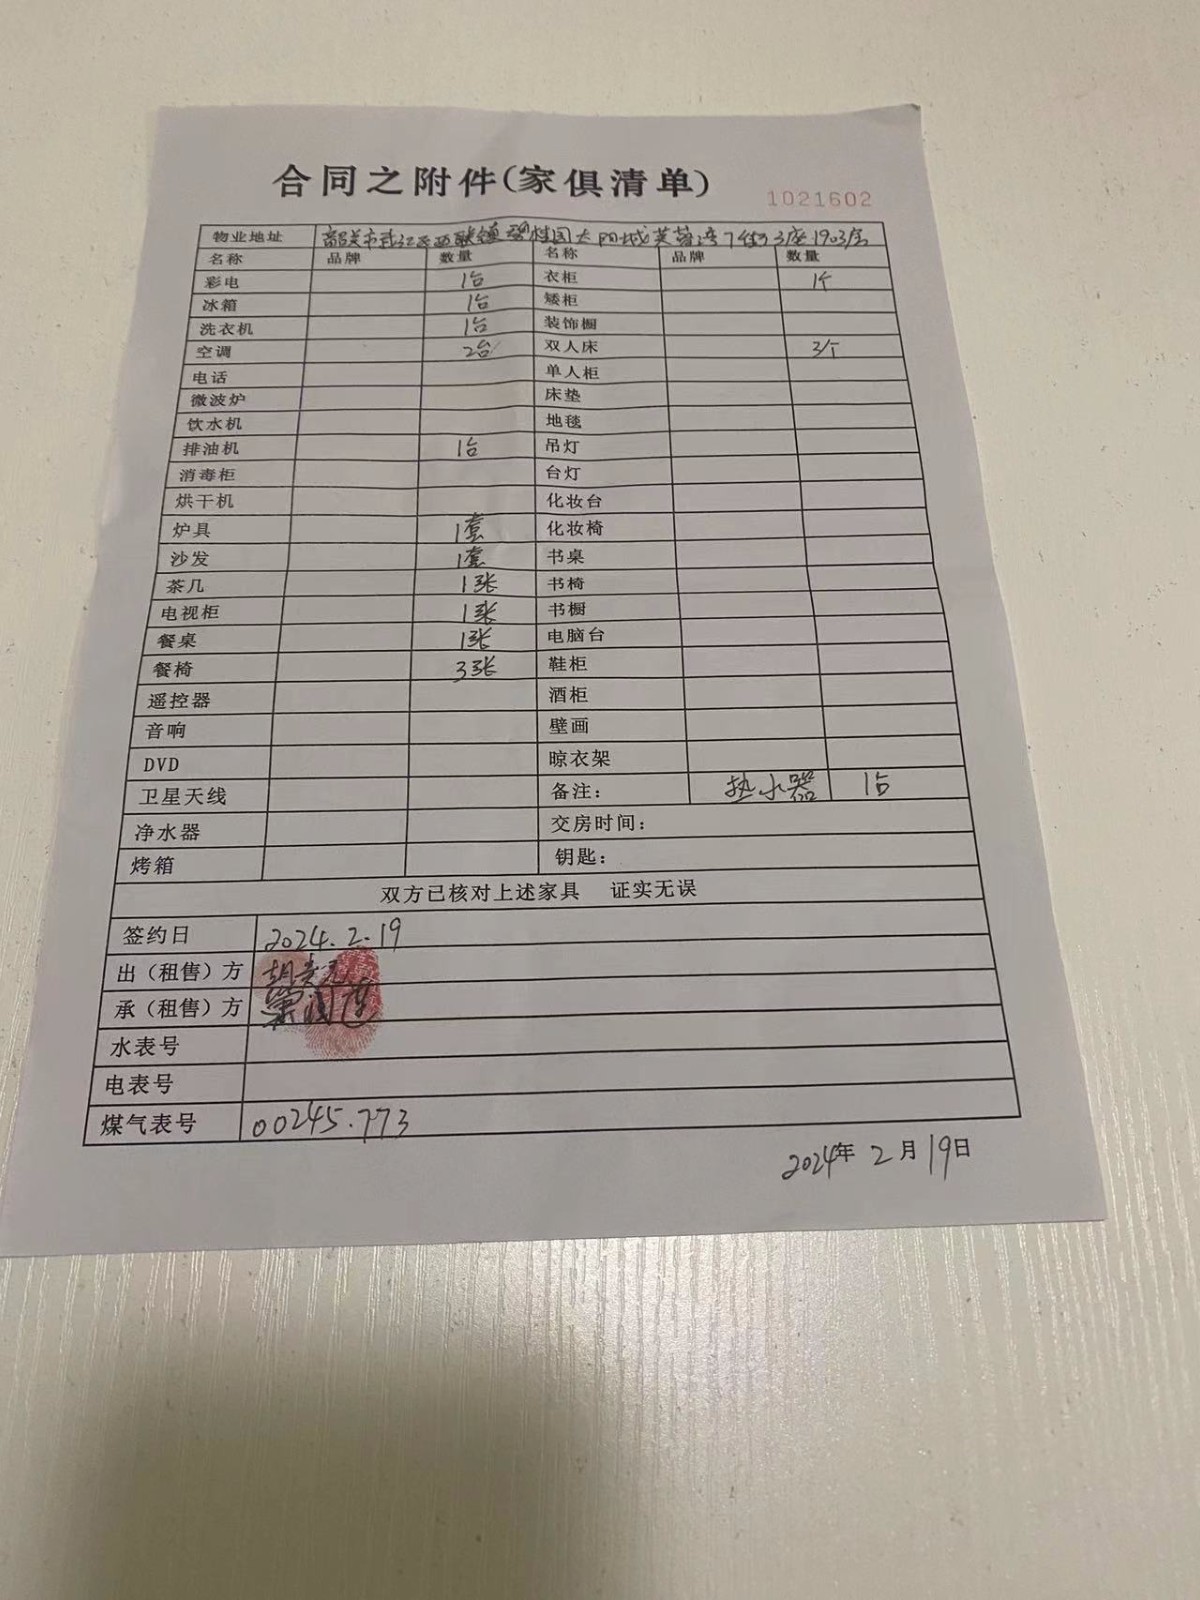 合同之附件(家俱清单)
1021602
物业地址 韶关市武江区西联镇碧桂园太阳城芙蓉湾7街3座1903房
名称 品牌 数量 名称 品牌 数量
彩电 1台 衣柜 1个
冰箱 1台 矮柜
洗衣机 1台 装饰橱
空调 2台 双人床 3个
电话 单人柜
微波炉 床垫
饮水机 地毯
排油机 1台 吊灯
消毒柜 台灯
烘干机 化妆台
炉具 1套 化妆椅
沙发 1套 书桌
茶几 1张 书椅
电视柜 1张 书橱
餐桌 1张 电脑台
餐椅 3张 鞋柜
遥控器 酒柜
音响 壁画
DVD 晾衣架
卫星天线 备注： 热水器 1台
净水器 交房时间：
烤箱 钥匙：
双方已核对上述家具 证实无误
签约日 2024.2.19
出（租售）方
承（租售）方
水表号
电表号
煤气表号 00245.773
2024年2月19日